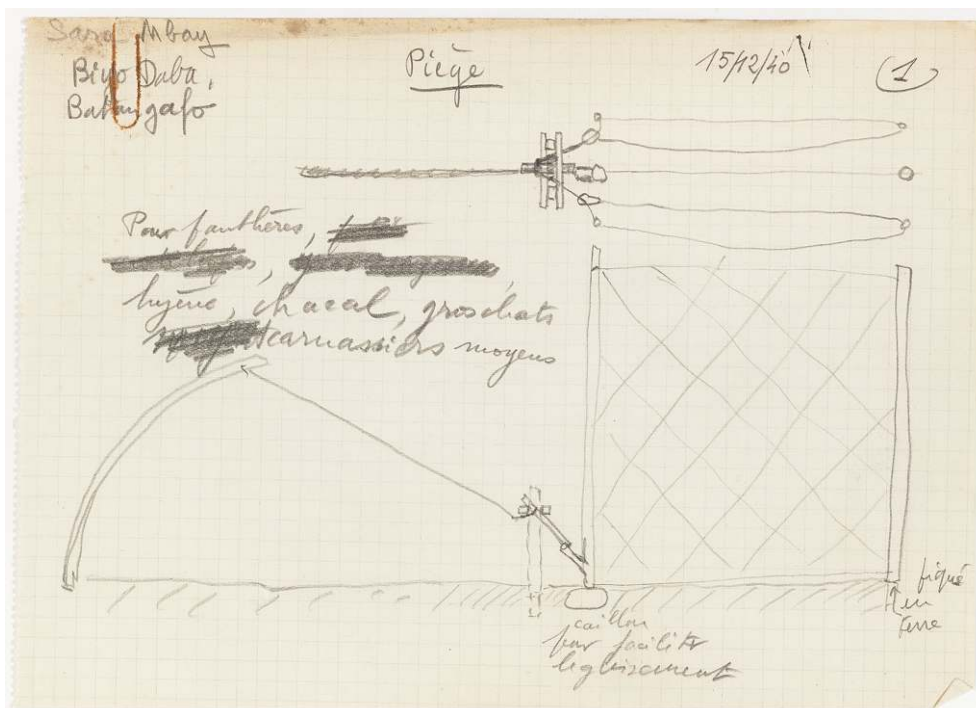 Sara Mbay
Biyo Daba,
Batangafo
Piège
15/12/40
1
Pour panthères,
hyène, chacal, gros chats
carnassiers moyens
piqué
en
terre
caillou
pour faciliter
le glissement